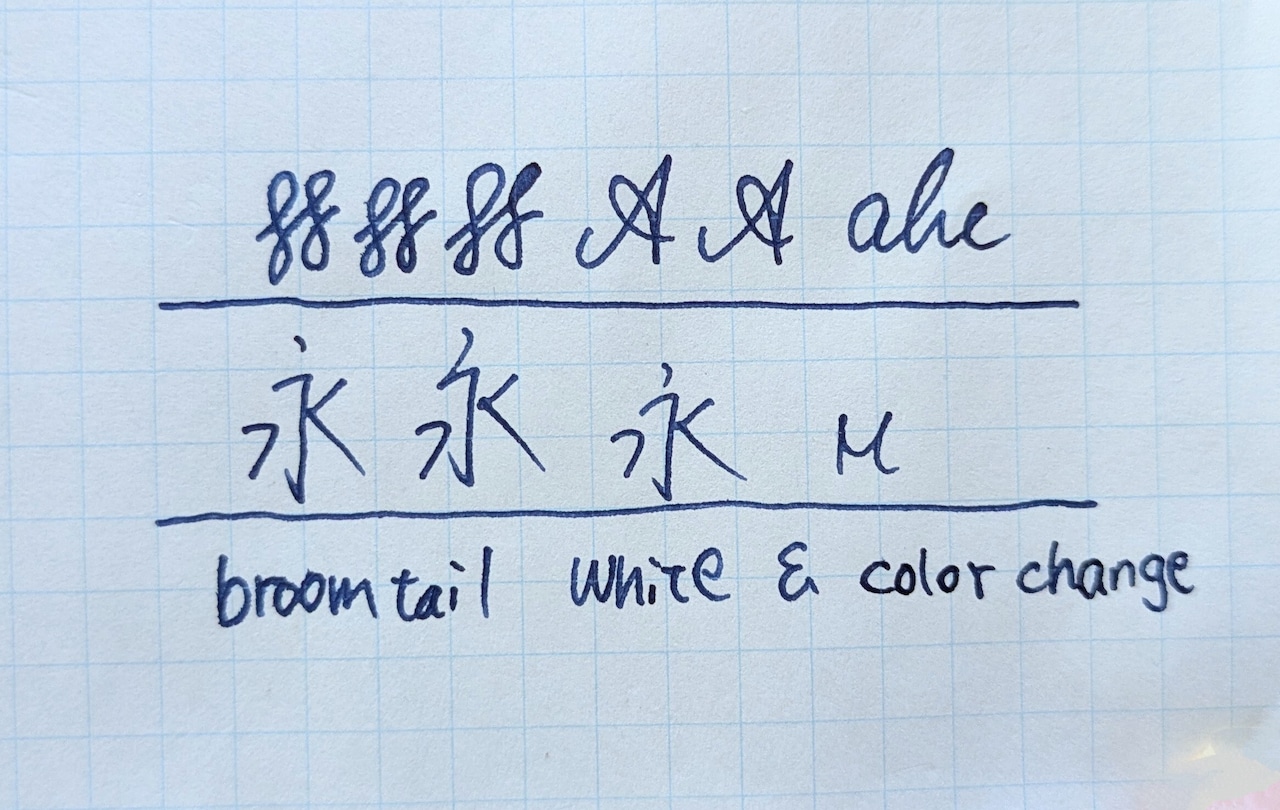 ff ff ff A A abc
永 永 永 M
broomtail white & color change